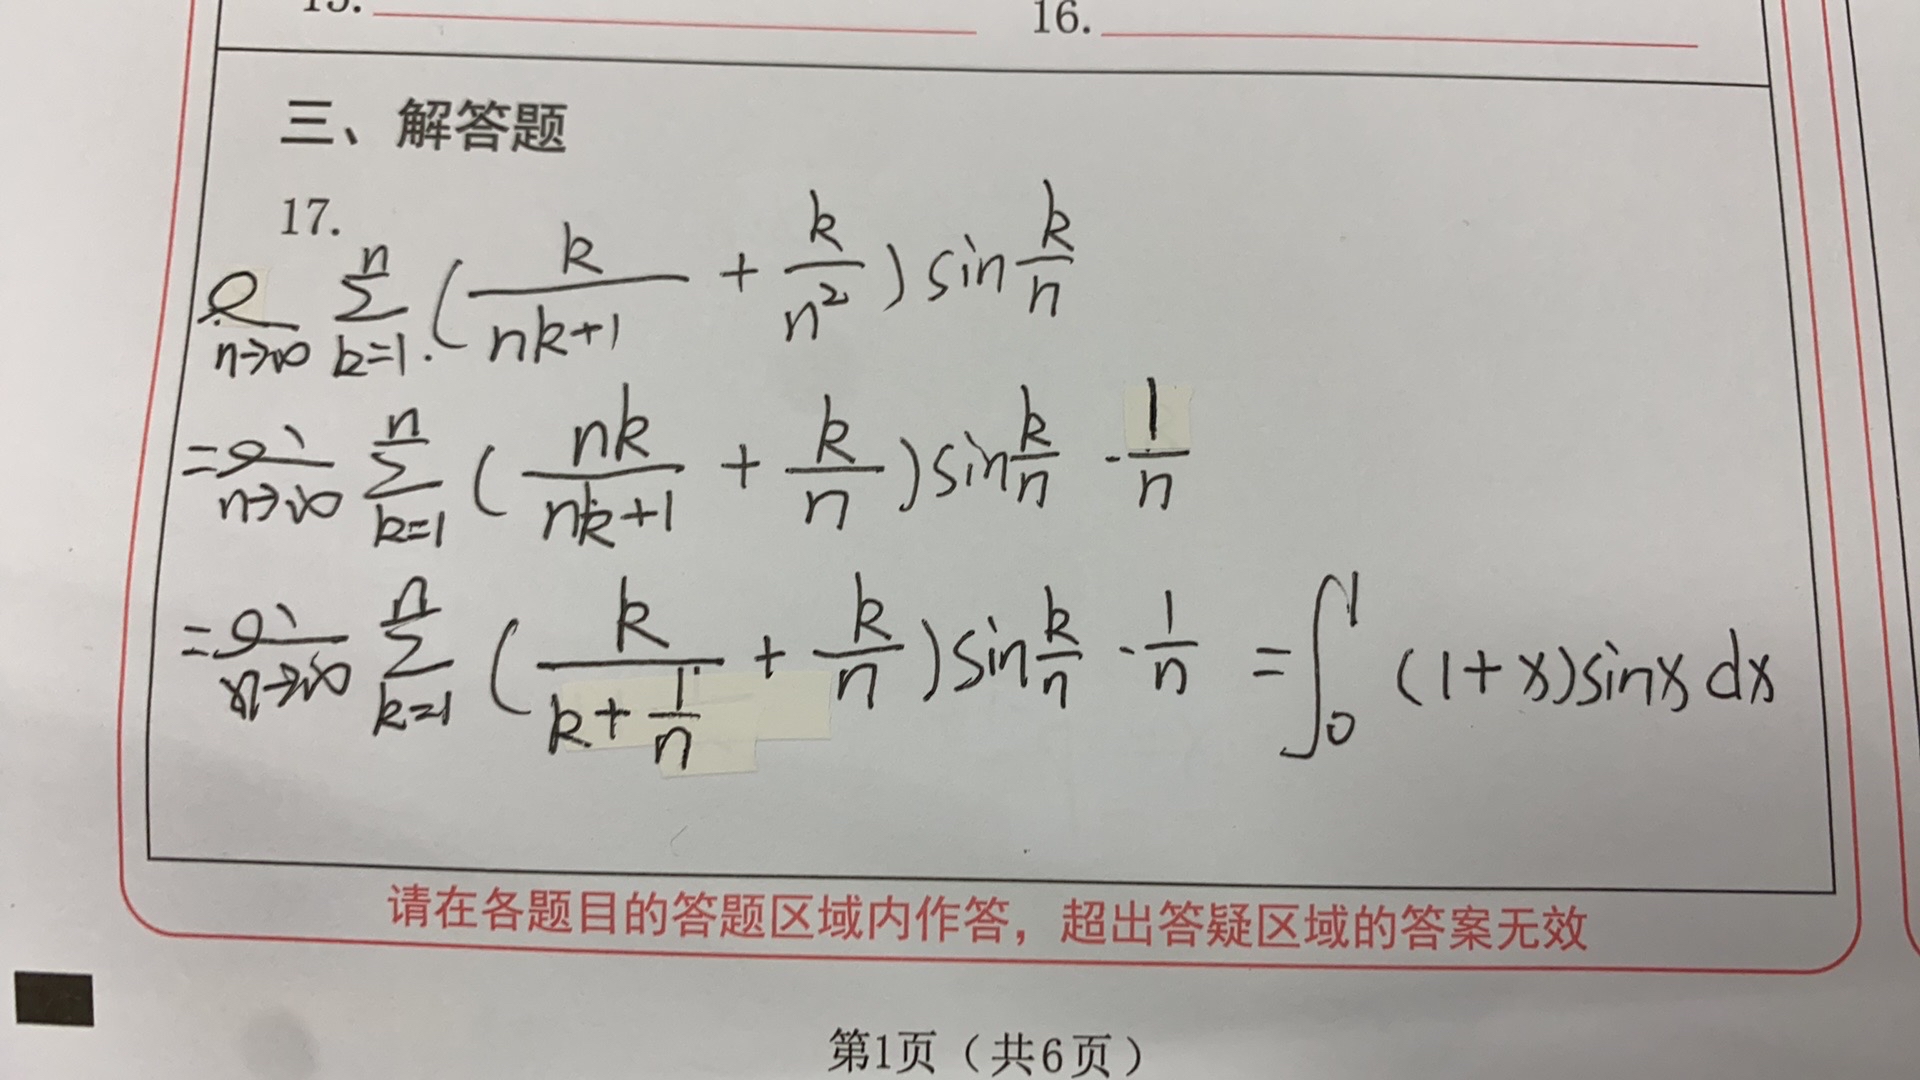 15. 16.
三、解答题
17.
lim n→∞ n∑k=1 (k/(nk+1) + k/n²) sin k/n
= lim n→∞ n∑k=1 (nk/(nk+1) + k/n) sin k/n · 1/n
= lim n→∞ n∑k=1 (k/(k+1/n) + k/n) sin k/n · 1/n = ∫₀¹ (1+x) sinx dx
请在各题目的答题区域内作答，超出答疑区域的答案无效
第1页（共6页）